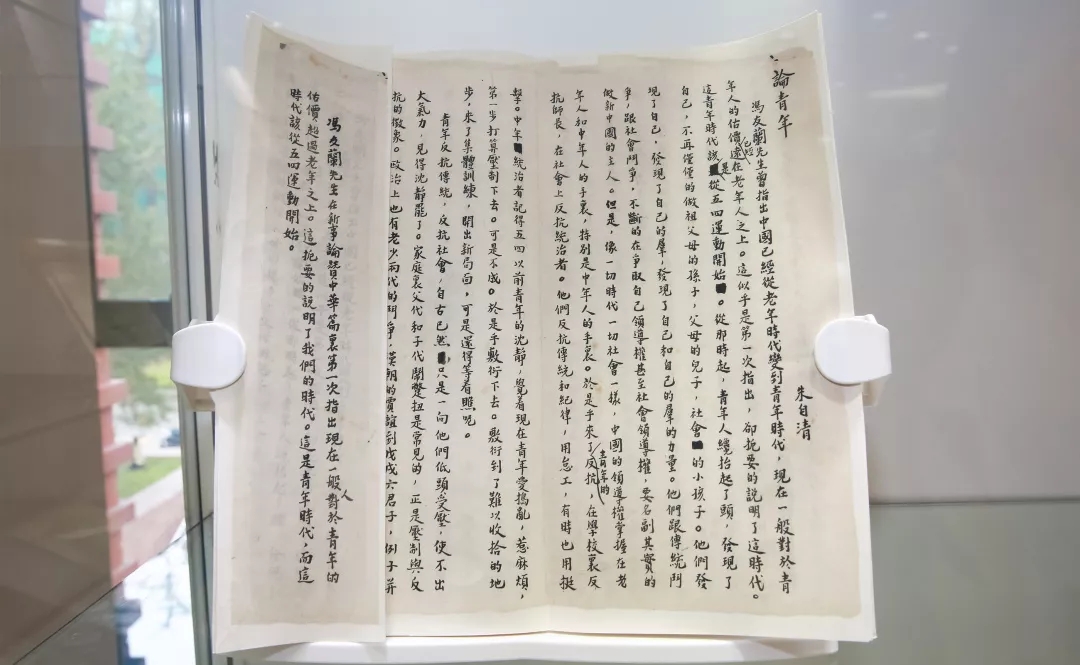 論青年
朱自清
馮友蘭先生曾指出中國已經從老年時代變到青年時代,現在一般對於青
年人的估價已經遠在老年人之上。這似乎是第一次指出,卻扼要的說明了這時代。
這青年時代該是從五四運動開始。從那時起,青年人纔抬起了頭,發現了
自己,不再僅僅的做祖父母的孫子,父母的兒子,社會的小孩子。他們發
現了自己,發現了自己的羣,發現了自己和自己的羣的力量。他們跟傳統鬥
爭,跟社會鬥爭,不斷的在爭取自己領導權甚至社會領導權,要名副其實的
做新中國的主人。但是,像一切時代一切社會一樣,中國的領導權掌握在老
年人和中年人的手裏,特別是中年人的手裏。於是乎來了青年的反抗,在學校裏反
抗師長,在社會上反抗統治者。他們反抗傳統和紀律,用怠工,有時也用挺
擊。中年統治者記得五四以前青年的沈靜,覺着現在青年愛搗亂,惹麻煩,
第一步打算壓制下去。可是不成。於是乎敷衍下去。敷衍到了難以收拾的地
步,來了集體訓練,開出新局面,可是還得等着瞧呢。
青年反抗傳統,反抗社會,自古已然,只是一向他們低頭受壓,使不出
大氣力,見得沈靜罷了。家庭裏父代和子代鬧彆扭是常見的,正是壓制與反
抗的徵象。政治上也有老少兩代的鬥爭,漢朝的賈誼到戊戌六君子,例子並
馮友蘭先生在新事論讚中華篇裏第一次指出現在一般人對於青年的
估價超過老年之上。這扼要的說明了我們的時代。這是青年時代,而這
時代該從五四運動開始。